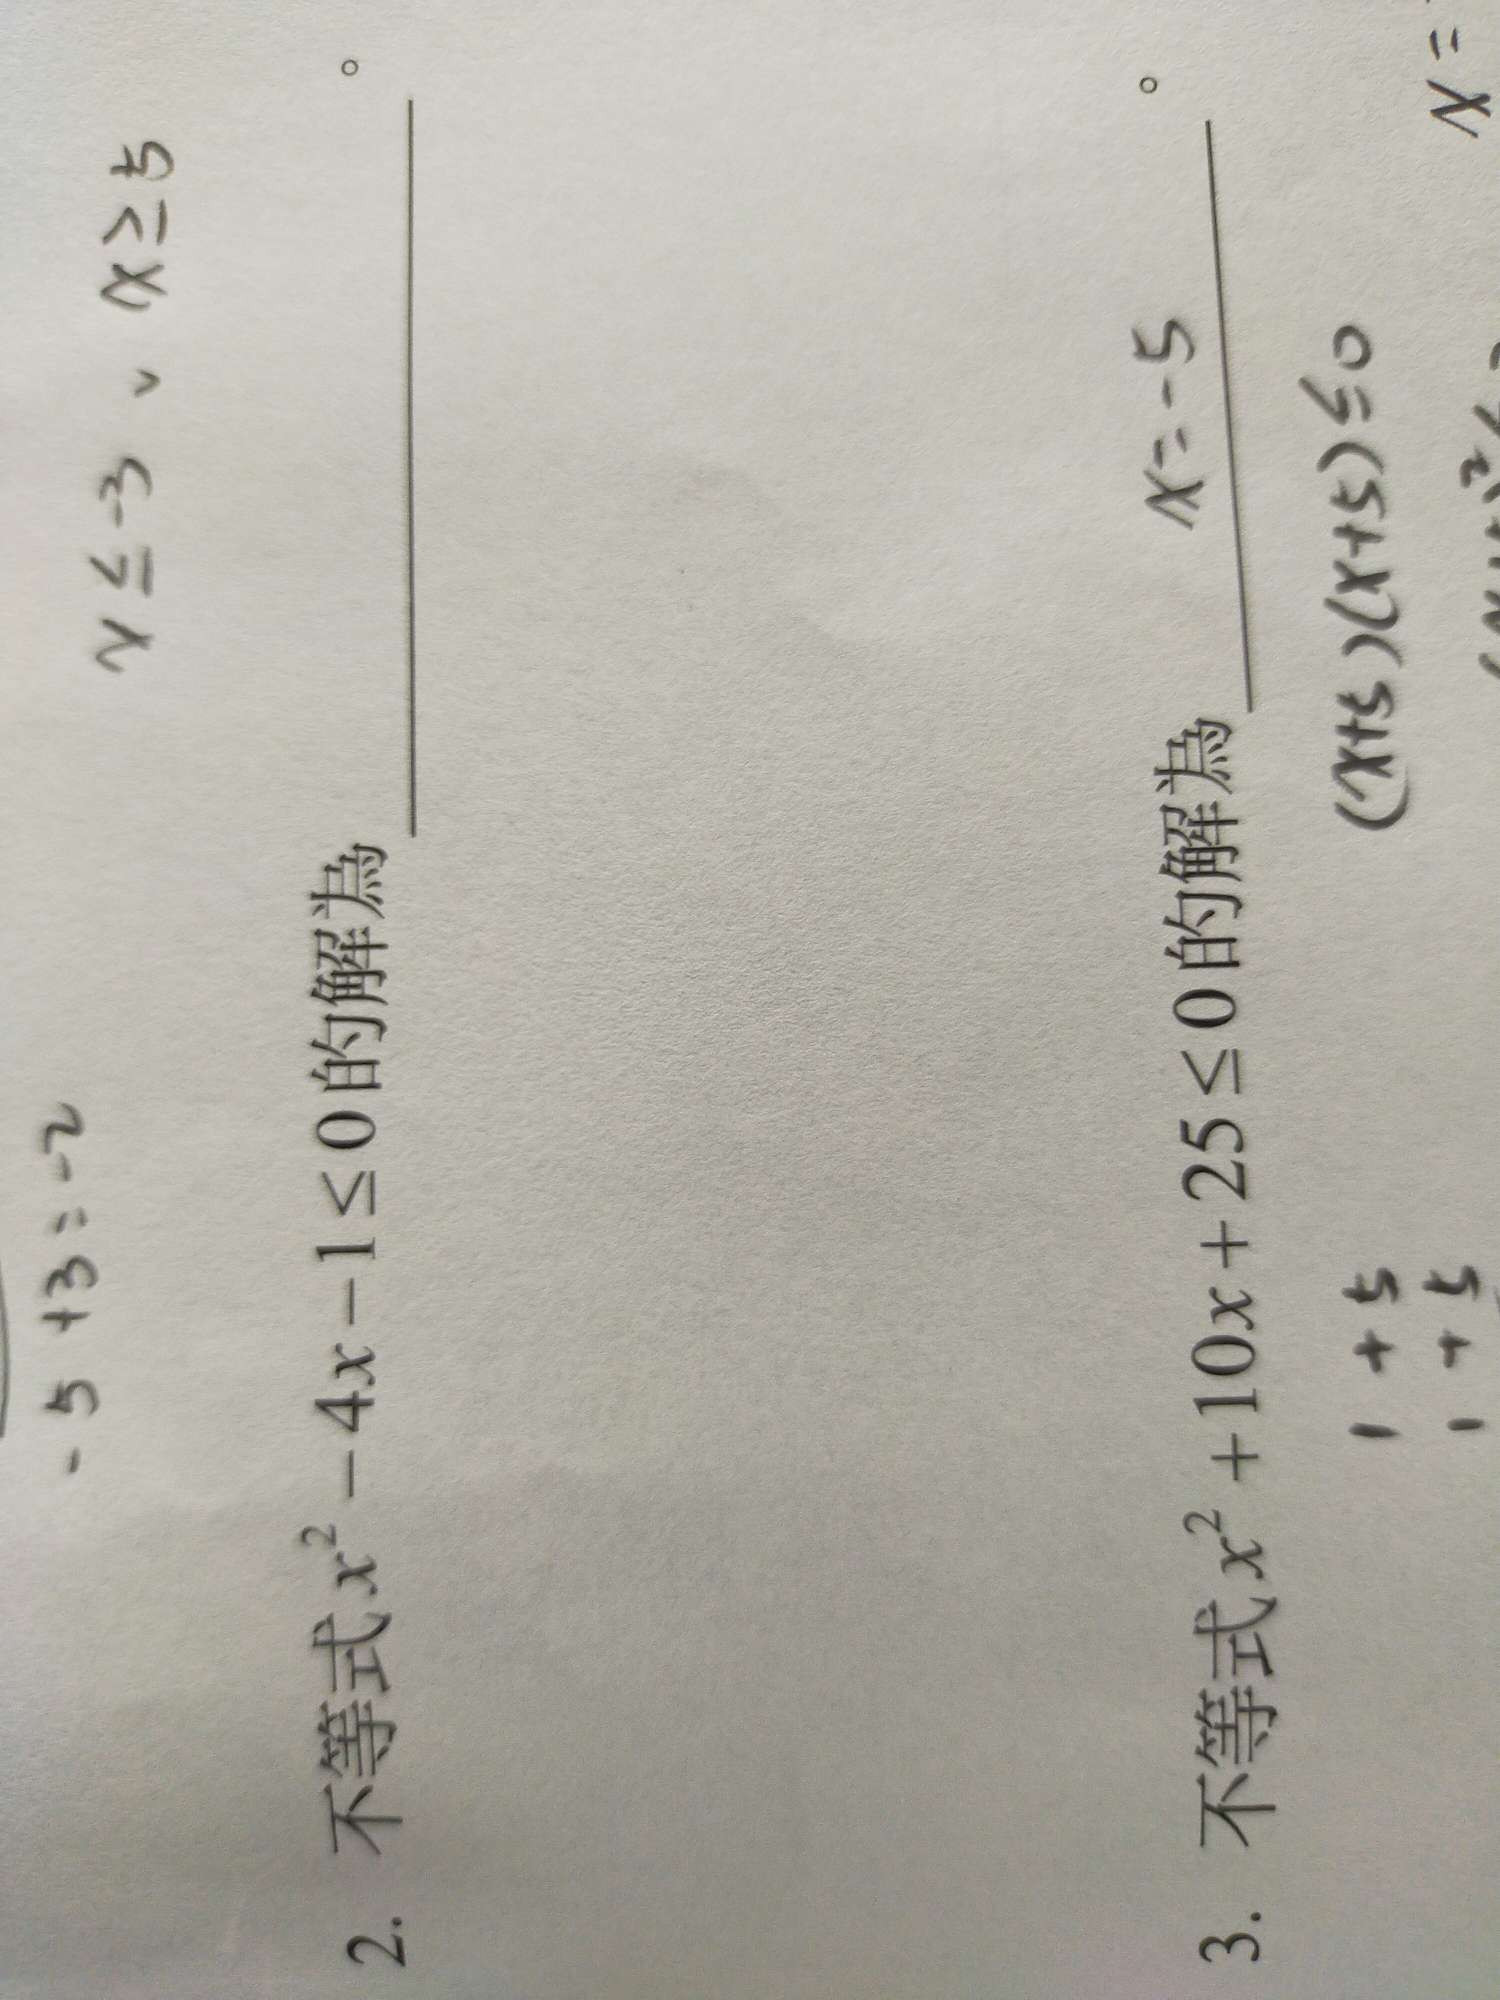 -5 +3=-2
x ≤ -3 ∨ x ≥ 5
2. 不等式 x² - 4x - 1 ≤ 0 的解為 ________ 。
3. 不等式 x² + 10x + 25 ≤ 0 的解為 x=-5 。
1 +5 (x+5)(x+5)≤0
1 +5
x=